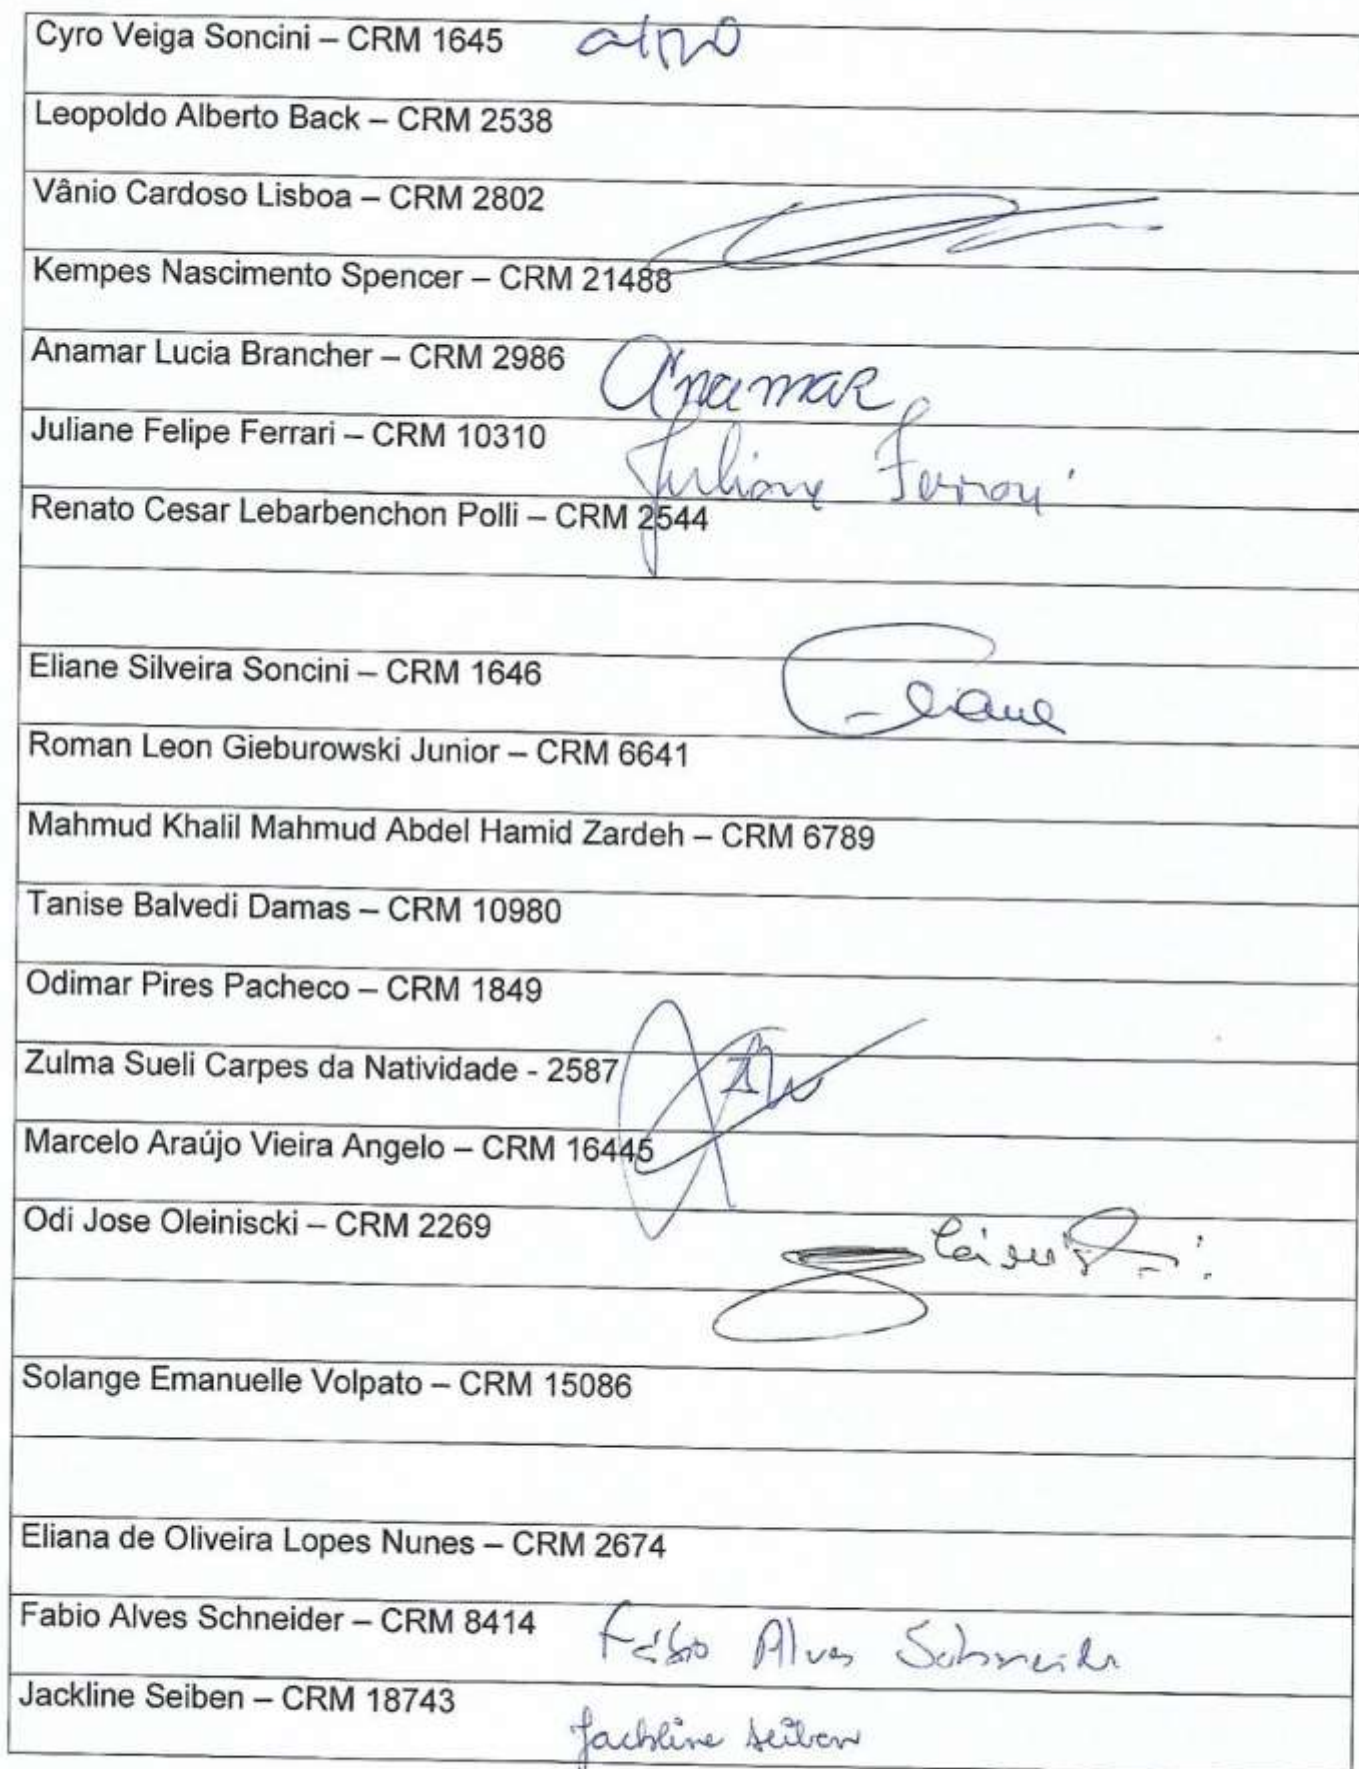 Cyro Veiga Soncini – CRM 1645
Leopoldo Alberto Back – CRM 2538
Vânio Cardoso Lisboa – CRM 2802
Kempes Nascimento Spencer – CRM 21488
Anamar Lucia Brancher – CRM 2986 Anamar
Juliane Felipe Ferrari – CRM 10310 Juliane Ferrari
Renato Cesar Lebarbenchon Polli – CRM 2544
Eliane Silveira Soncini – CRM 1646 Eliane
Roman Leon Gieburowski Junior – CRM 6641
Mahmud Khalil Mahmud Abdel Hamid Zardeh – CRM 6789
Tanise Balvedi Damas – CRM 10980
Odimar Pires Pacheco – CRM 1849
Zulma Sueli Carpes da Natividade - 2587
Marcelo Araújo Vieira Angelo – CRM 16445
Odi Jose Oleiniscki – CRM 2269
Solange Emanuelle Volpato – CRM 15086
Eliana de Oliveira Lopes Nunes – CRM 2674
Fabio Alves Schneider – CRM 8414 Fábio Alves Schneider
Jackline Seiben – CRM 18743 Jackline Seiben